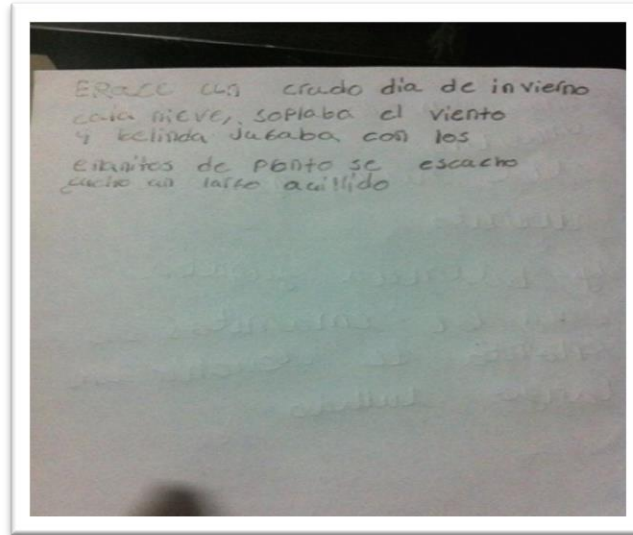 ERacc un crudo dia de invierno
caia nieve, soplaba el viento
y belinda Jugaba con los
enanitos de Ponto se escacho
cucho un largo aullido